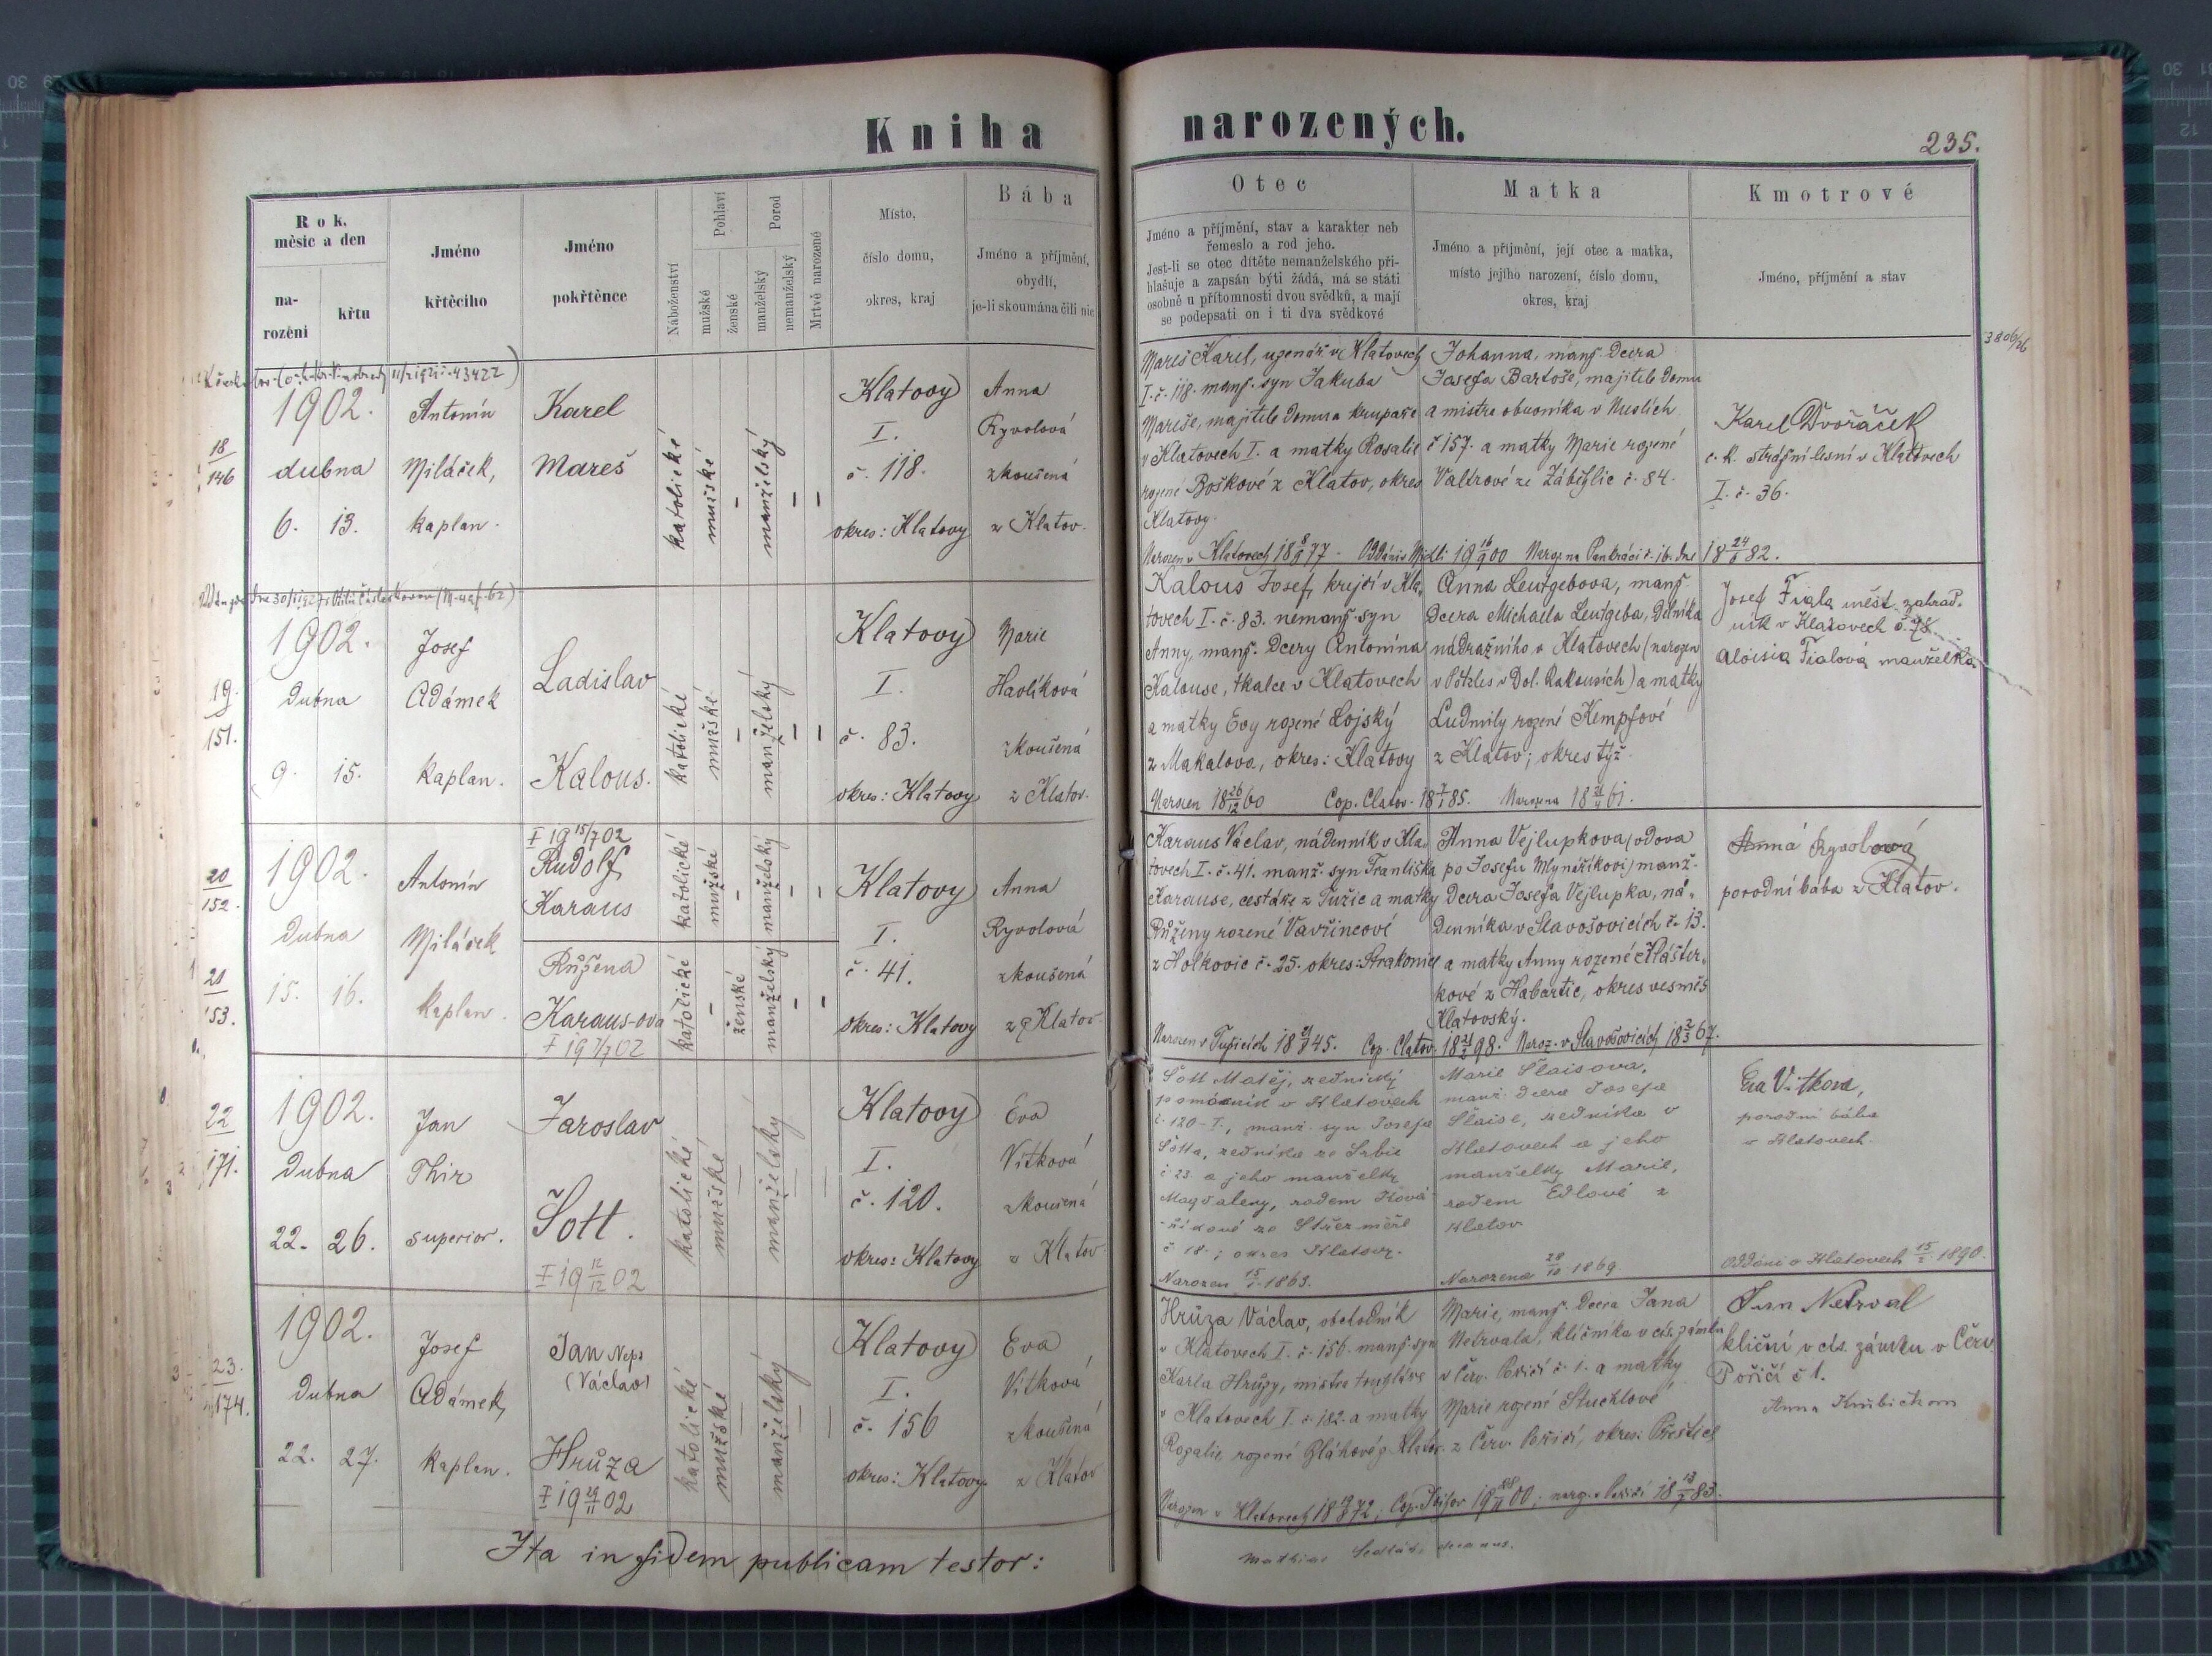 Kniha narozených.
235.
Rok, měsíc a den
narození
křtu
Jméno křtěcího
Jméno pokřtěnce
Náboženství
Pohlaví
mužské
ženské
Porod
manželský
nemanželský
Mrtvě narozené
Místo,
číslo domu,
okres, kraj
Bába
Jméno a příjmění,
obydlí,
je-li skoumána čili nic
Otec
Jméno a příjmění, stav a karakter neb
řemeslo a rod jeho.
Jest-li se otec dítěte nemanželského při-
hlašuje a zapsán býti žádá, má se státi
osobně u přítomnosti dvou svědků, a mají
se podepsati on i ti dva svědkové
Matka
Jméno a příjmění, její otec a matka,
místo jejího narození, číslo domu,
okres, kraj
Kmotrové
Jméno, příjmění a stav
18
146
1902.
dubna
6. 13.
Antonín
Miláček,
kaplan.
Karel
Mareš
katolické
mužské
manželský
Klatovy
I.
č. 118.
okres: Klatovy
Anna
Ryvolová
zkoušená
z Klatov.
Mareš Karel, uzenář v Klatovech
I. č. 118. manž. syn Jakuba
Mareše, majitele domu a krupaře
v Klatovech I. a matky Rosalie
rozené Boškové z Klatov, okres
Klatovy.
Johanna, manž. dcera
Josefa Bartoše, majitele domu
a mistra obuvníka v Nuslích
č 157. a matky Marie rozené
Valtrové ze Záběhlic č. 84.
Narozen v Klatovech 18 8/9 77
18 24/6 82.
Karel Dvořáček
c. k. strážní lesní v Klatovech
I. č. 36.
19
151.
1902.
dubna
9. 15.
Josef
Adámek
kaplan.
Ladislav
Kalous.
katolické
mužské
manželský
Klatovy
I.
č. 83.
okres: Klatovy
Marie
Havlíková
zkoušená
z Klatov.
Kalous Josef, krejčí v Kla-
tovech I. č. 83. nemanž. syn
Anny, manž. dcery Antonína
Kalouse, tkalce v Klatovech
a matky Evy rozené Lojský
z Makalova, okres: Klatovy
Narozen 18 26/12 60 Cop. Clatov. 18 7/1 85.
Anna Leutgebova, manž.
dcera Michaela Leutgeba, dělníka
nádražního v Klatovech (narozen
v Pötzles v Dol. Rakousích) a matky
Ludmily rozené Kempfové
z Klatov; okres týž.
Josef Fiala měst. zahrad-
ník v Klatovech
Aloisia Fialová manželka
20
152.
21
153.
1902.
dubna
15. 16.
Antonín
Miláček
kaplan.
† 19 15/7 02
Rudolf
Karaus
katolické
mužské
manželský
Růžena
Karaus-ova
katolické
ženské
manželský
Klatovy
I.
č. 41.
okres: Klatovy
Anna
Ryvolová
zkoušená
z Klatov.
Karaus Václav, nádenník v Kla-
tovech I. č. 41. manž. syn Františka
Karause, cestáře z Tužic a matky
Růženy rozené Vavřincové
z Holkovic č. 25. okres: Strakonice
Anna Vejlupkova (vdova
po Josefu Mlynaříkovi) manž.
dcera Josefa Vejlupka, ná-
denníka v Slavošovicích č. 13.
a matky Anny rozené Klášter-
kové z Habartic, okres vesměs
Klatovský.
Cop. Clatov. 18 21/2 98. Naroz. v Slavošovicích 18 2/3 67.
Anna Ryvolová
porodní bába z Klatov.
22
171.
1902.
dubna
22. 26.
Jan
Thir
superior.
Jaroslav
Šott.
† 19 12/12 02
katolické
mužské
manželský
Klatovy
I.
č. 120.
okres: Klatovy
Eva
Vítková
zkoušená
z Klatov
Šott Matěj, zednický
pomocník v Klatovech
č. 120-I., manž. syn Josefa
Šotta, zedníka ze Srbic
č 23. a jeho manželky
Magdaleny, rodem Ková-
říkové ze Střezměře
č 18.; okres Klatovy.
Narozen 1863.
Marie Šlaisova,
manž. dcera Josefa
Šlaise, zedníka v
Klatovech a jeho
manželky Marie,
rodem Edlové z
Klatov
Narozena 28/10 1869.
Eva Vítkova,
porodní bába
v Klatovech.
Oddáni v Klatovech 1890.
23.
174.
1902.
dubna
22. 27.
Josef
Adámek,
kaplan.
Jan Nep.
(Václav)
Hrůza
† 19 29/11 02
katolické
mužské
manželský
Klatovy
I.
č. 156
okres: Klatovy
Eva
Vítková
zkoušená
z Klatov
Hrůza Václav, obchodník
v Klatovech I. č. 156. manž. syn
Karla Hrůzy, mistra
v Klatovech I. č. 182. a matky
Rozalie, rozené
Marie, manž. dcera Jana
Netrvala, klíčníka v cís. zámku
v Červ. Poříčí č. 1. a matky
Marie rozené Stuchlové
z Červ. Poříčí, okres: Přeštice
Jan Netrval
klíční v cís. zámku v Červ.
Poříčí č 1.
Ita in fidem publicam testor: